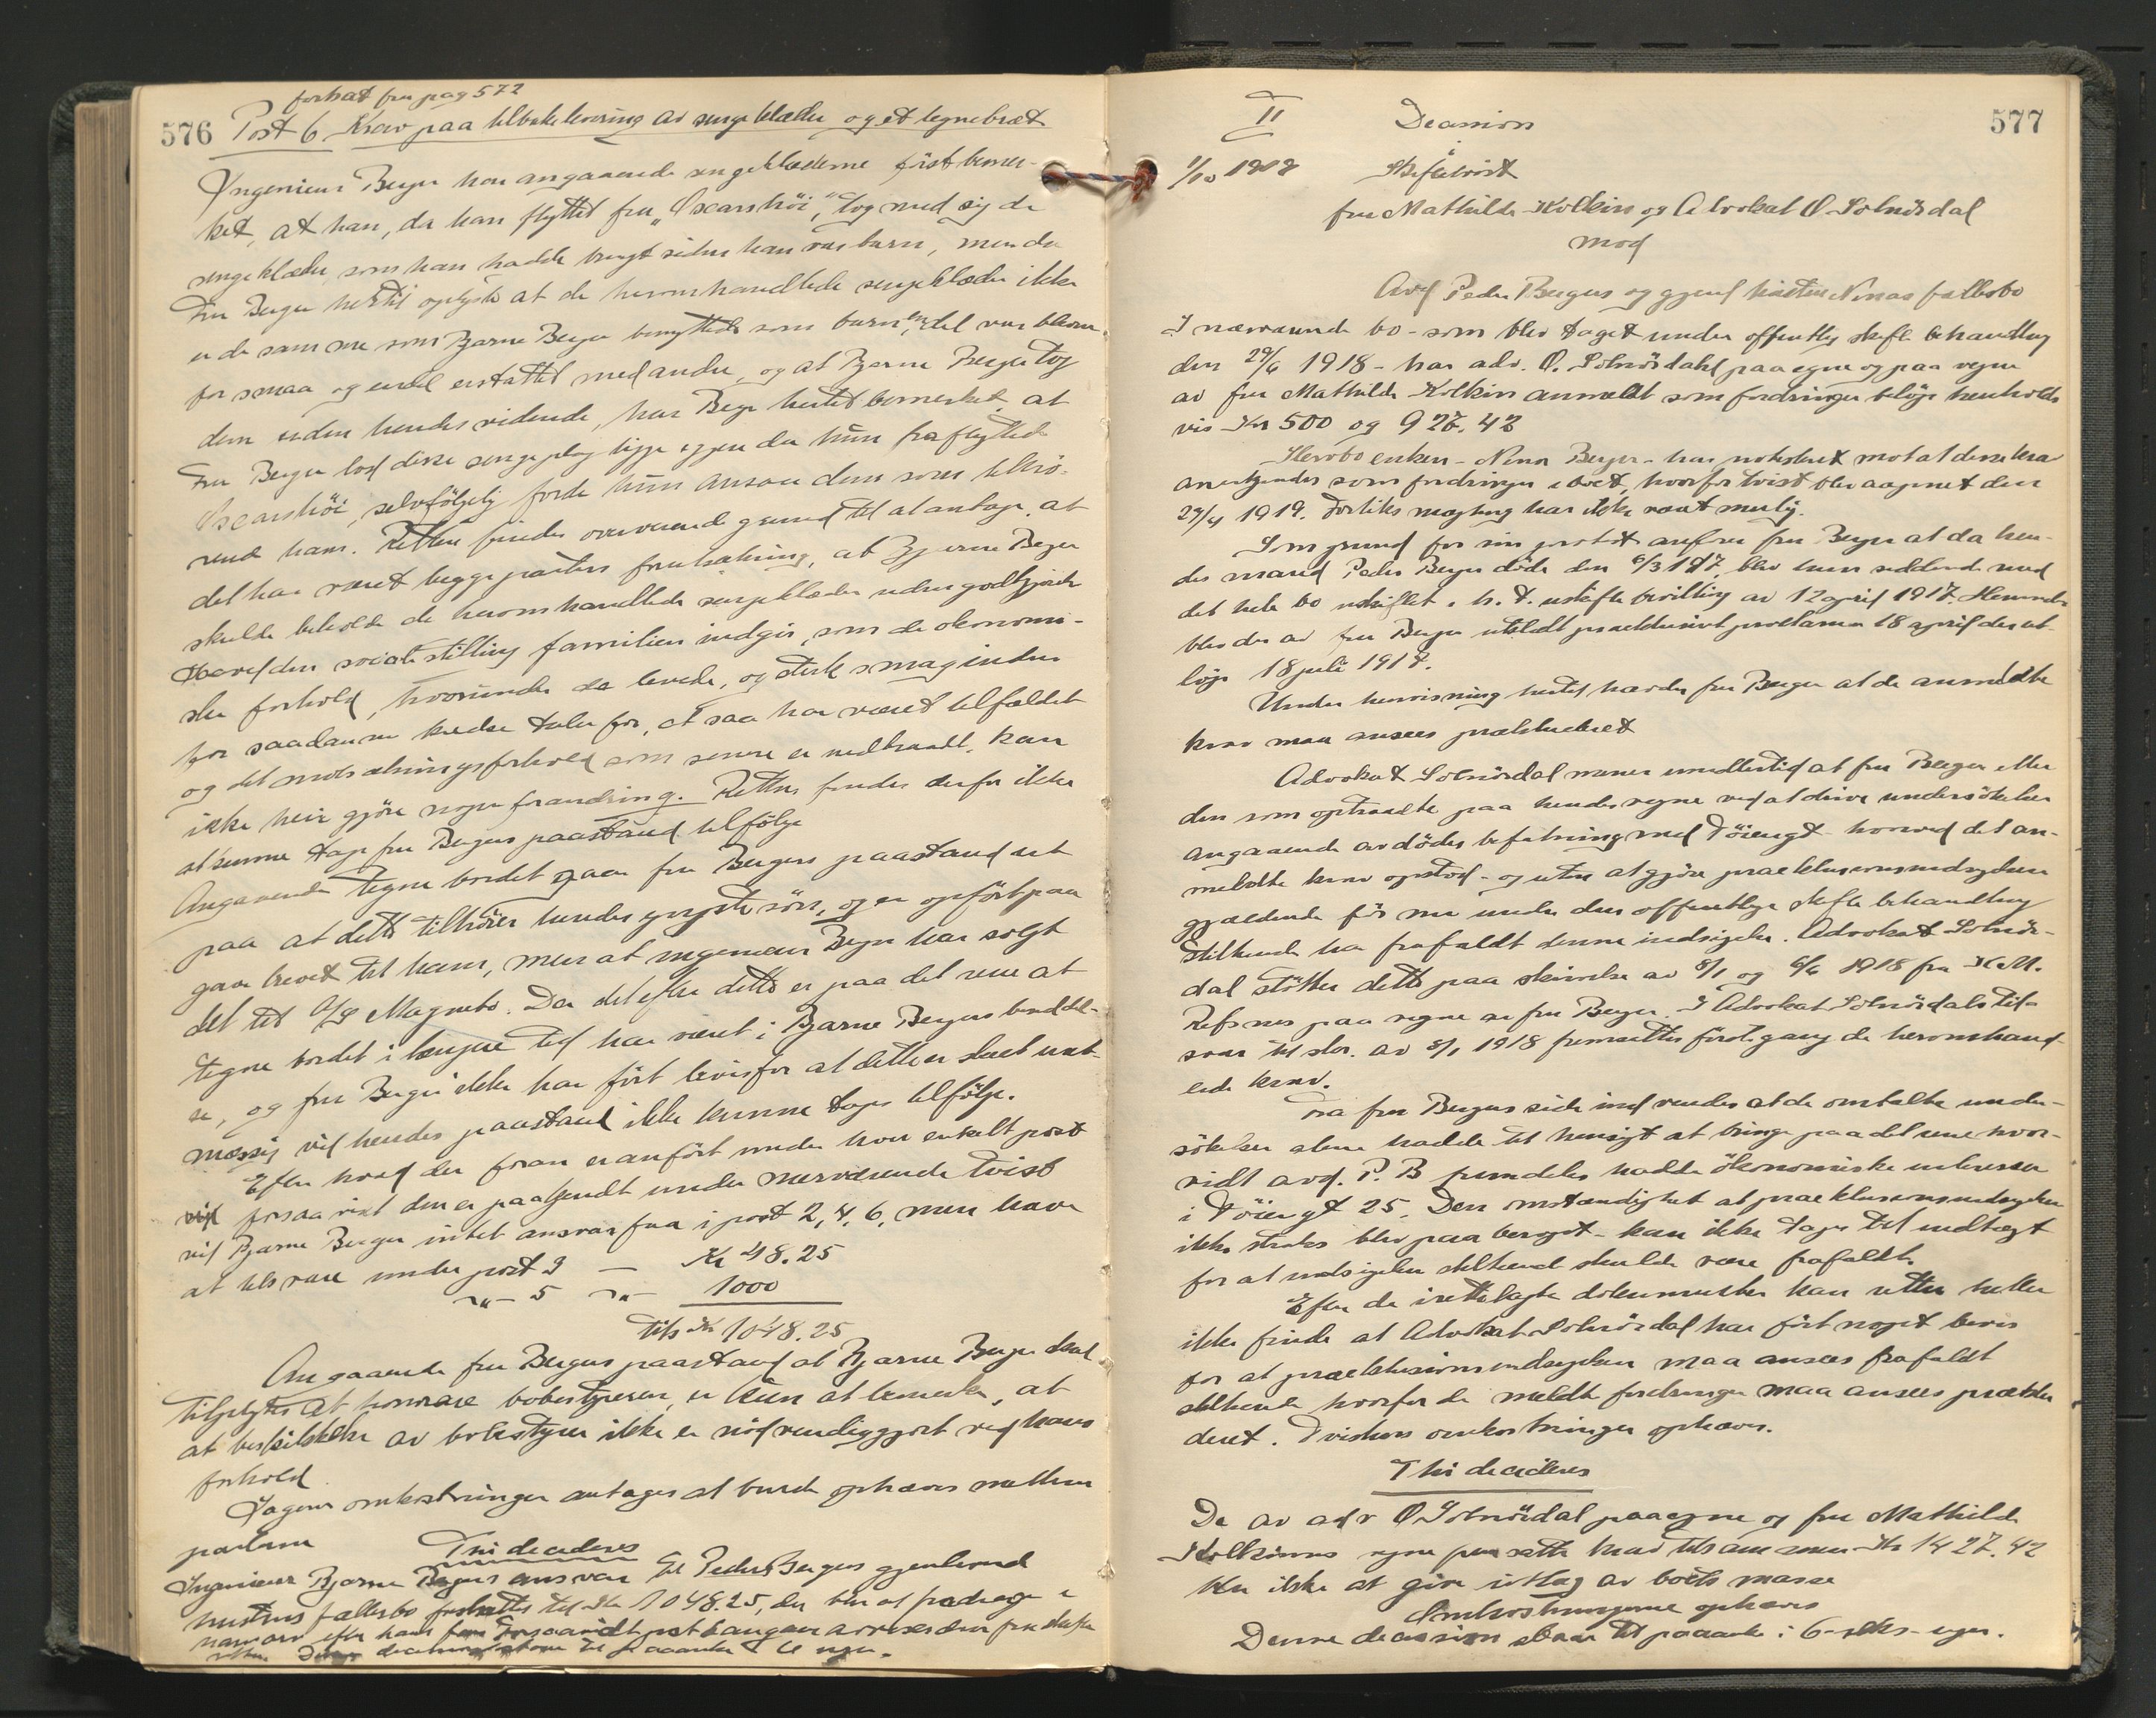 fortsat fra pag 572
576 Post 6 Krav paa tilbakelevering av sengeklæder og et tegnebræt
Ingeniør Berger har angaaende sengeklæderne først bemer-
ket, at han, da han flyttet fra "Oscarshöi", tog med sig de
sengeklæder, som han hadde brugt siden han var barn, men da
Fru Berger hertil oplyste at de heromhandlede sengeklæder ikke
er de samme som Bjarne Berger benyttede som barn, en del var blevne
for smaa og endel erstattet med andre, og at Bjarne Berger tog
dem uden hendes vidende, har Berger hertil bemerket, at
Fru Berger lod disse sengeplag ligge igjen da hun fraflyttede
Oscarshöi, selvfölgelig fordi hun ansaa dem som tilhö-
rende ham. Retten finder overveiende grund til at antage, at
det har været begge parters forutsætning, at Bjarne Berger
skulde beholde de heromhandlede sengeklæder uden godtgjörelse
Baade den sociale stilling familien indgir, som de økonomi-
ske forhold, hvorunder de levede, og skik smag inden
for saadanne kredse taler for, at saa har været tilfældet
og det motsætningsforhold som senere er indtraadt, kan
ikke heri gjöre nogen forandring. Retten finder derfor ikke
at kunne tage fru Bergers paastand tilfölge
Angaaende tegnebordet gaar fru Bergers paastand ut
paa at dette tilhörer hendes yngste sön, og er opfört paa
gave brevet til ham, men at ingeniør Berger har solgt
det til A/S Magneto. Da det efter dette er paa det rene at
tegne bordet i længere tid har været i Bjarne Bergers besiddel-
se, og fru Berger ikke har fört bevis for at dette er sket uret-
mæssig vil hendes paastand ikke kunne tages tilfölge.
Efter hvad der foran er anfört under hver enkelt post
forsaavidt den er paakjendt under nærværende tvist
vil Bjarne Berger intet ansvar faa i post 2, 4, 6, men have
at tilsvare under post 3 — Kr 48.25
—"— 5 —"— 1000
Tils Kr 1048.25
Angaaende fru Bergers paastand at Bjarne Berger skal
tilpligtes at honorare bobestyreren, er kun at bemerke, at
at beskikkelse av bobestyrer ikke er nödvendiggjort ved hans
forhold
Sagens omkostninger antages at burde ophæves mellem
parterne
Thi decideres
Ingeniør Bjarne Bergers ansvar til Peder Bergers gjenlevend
hustrus fællesbo fastsættes til Kr 1048.25, der blir at fradrage i
hans arv efter hans far Forsaavidt post angaar avvises den fra skifte
retten Denne decision staar til paaanke i 6 uger.
577
II Decision
1/10 1919 Skiftetvist
fru Mathilde Kolkinn og Advokat O. Solnördal
mod
Avd Peder Bergers og gjenl hustru Ninas fællesbo
I nærværende bo - som blev taget under offentlig skifte behandling
den 29/6 1918 - har adv. O. Solnördahl paa egne og paa vegne
av fru Mathilde Kolkinn anmeldt som fordringer beløp henholds
vis Kr 500 og 927.42
Herobo enken - Nina Berger - har protesteret mot at disse krav
anerkjendes som fordringer i boet, hvorfor tvist blev aapnet den
29/4 1919. Forliks mægling har ikke været mulig.
Som grund for sin protest anfører fru Berger at da hen-
des mand Peder Berger döde den 6/3 1917, blev hun siddende med
det hele bo uskiftet i h. t. uskifte bevilling av 12 april 1917. Herunder
blev der av fru Berger utstedt præklusivt proclama 18 april der ut
löp 18 juli 1917.
Under henvisning hertil hævder fru Berger at de anmeldte
krav maa ansees prækluderet
Advokat Solnördal mener imidlertid at fru Berger eller
den som optraadte paa hendes vegne ved at drive undersökelser
angaaende avdödes befatning med Töiengt - hvorved det an-
meldte krav opstod - og uten at gjöre præklusionsindsigelsen
gjældende för nu under den offentlige skifte behandling
stiltiende har frafaldt denne indsigelse. Advokat Solnör-
dal stötter dette paa skrivelse av 8/1 og 6/6 1918 fra K.M.
Refsnes paa vegne av fru Berger. I Advokat Solnördals til-
svar til skr. av 8/1 1918 fremsættes förste gang de heromhand-
lede krav.
Fra fru Bergers side indvendes at de omtalte under-
sökelser alene hadde til hensigt at bringe paa det rene hvor-
vidt avd. P. B fremdeles hadde ökonomiske interesser
i Töiengt 25. Den omstændighet at præklusionsindsigelsen
ikke straks blev paaberopt - kan ikke tages til indtægt
for at indsigelsen stiltiende skulde være frafaldt.
Efter de irettelagte dokumenter kan retten heller
ikke finde at Advokat Solnördal har fört noget bevis
for at præklusionsindsigelsen maa ansees frafaldt
stiltiende hvorfor de meldte fordringer maa ansees præklu
deret. Tvistens omkostninger ophæves.
Thi decideres
De av adv O Solnördal paa egne og fru Mathilde
Kolkinns vegne fremsatte krav tilsammen Kr 1427.42
blir ikke at give utlæg av boets masse
Omkostningerne ophæves
Denne decision staar til paaanke i 6-seks-uger.